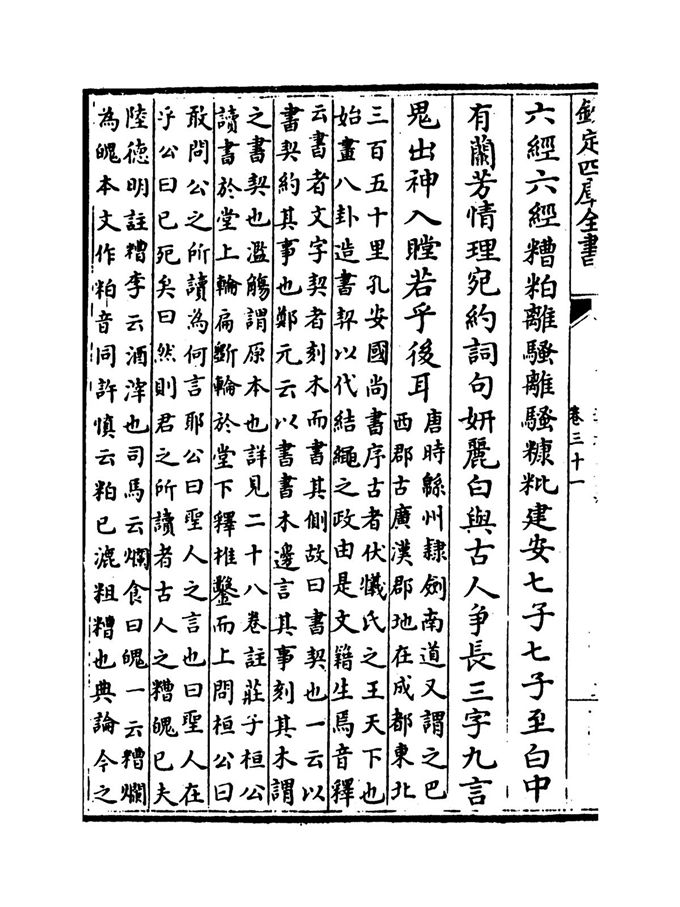 欽定四庫全書
卷三十一
六經六經糟粕離騷離騷糠粃建安七子七子至白中
有蘭芳情理宛約詞句妍麗白與古人爭長三字九言
鬼出神入瞠若乎後耳
唐時緜州隷劍南道又謂之巴
西郡古廣漢郡地在成都東北
三百五十里孔安國尚書序古者伏犧氏之王天下也
始畫八卦造書契以代結繩之政由是文籍生焉音釋
云書者文字契者刻木而書其側故曰書契也一云以
書契約其事也鄭元云以書書木邊言其事刻其木謂
之書契也濫觴謂原本也詳見二十八卷註莊子桓公
讀書於堂上輪扁斲輪於堂下釋椎鑿而上問桓公曰
敢問公之所讀為何言耶公曰聖人之言也曰聖人在
乎公曰已死矣曰然則君之所讀者古人之糟魄已夫
陸德明註糟李云酒滓也司馬云爛食曰魄一云糟爛
為魄本文作粕音同許慎云粕已漉粗糟也典論今之